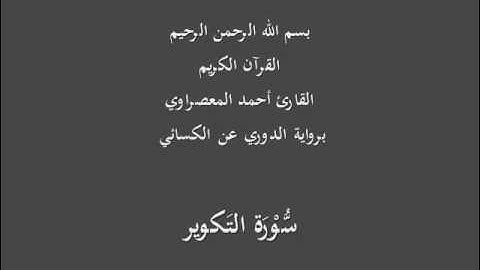 بسم الله الرحمن الرحيم
القرآن الكريم
القارئ أحمد المعصراوي
برواية الدوري عن الكسائي
سُّوْرَة التَكوير